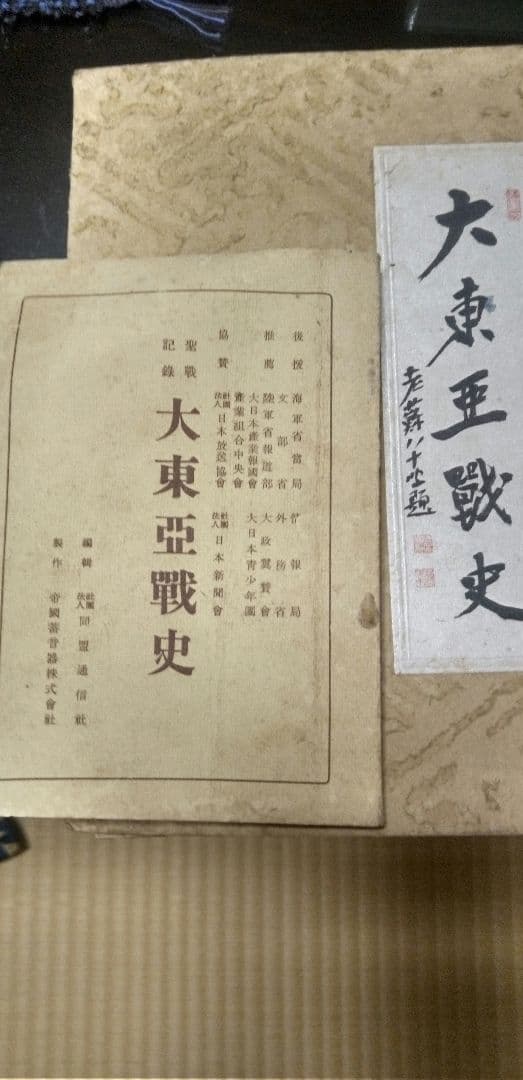 大東亞戰史
老蘇八十題
後援 海軍省當局 情報局
文部省 外務省
推薦 陸軍省報道部 大政翼贊會
大日本產業報國會 大日本青少年團
產業組合中央會
協贊 社團法人日本放送協會 社團法人日本新聞會
聖戰記錄 大東亞戰史
編輯 社團法人同盟通信社
製作 帝國蓄音器株式會社